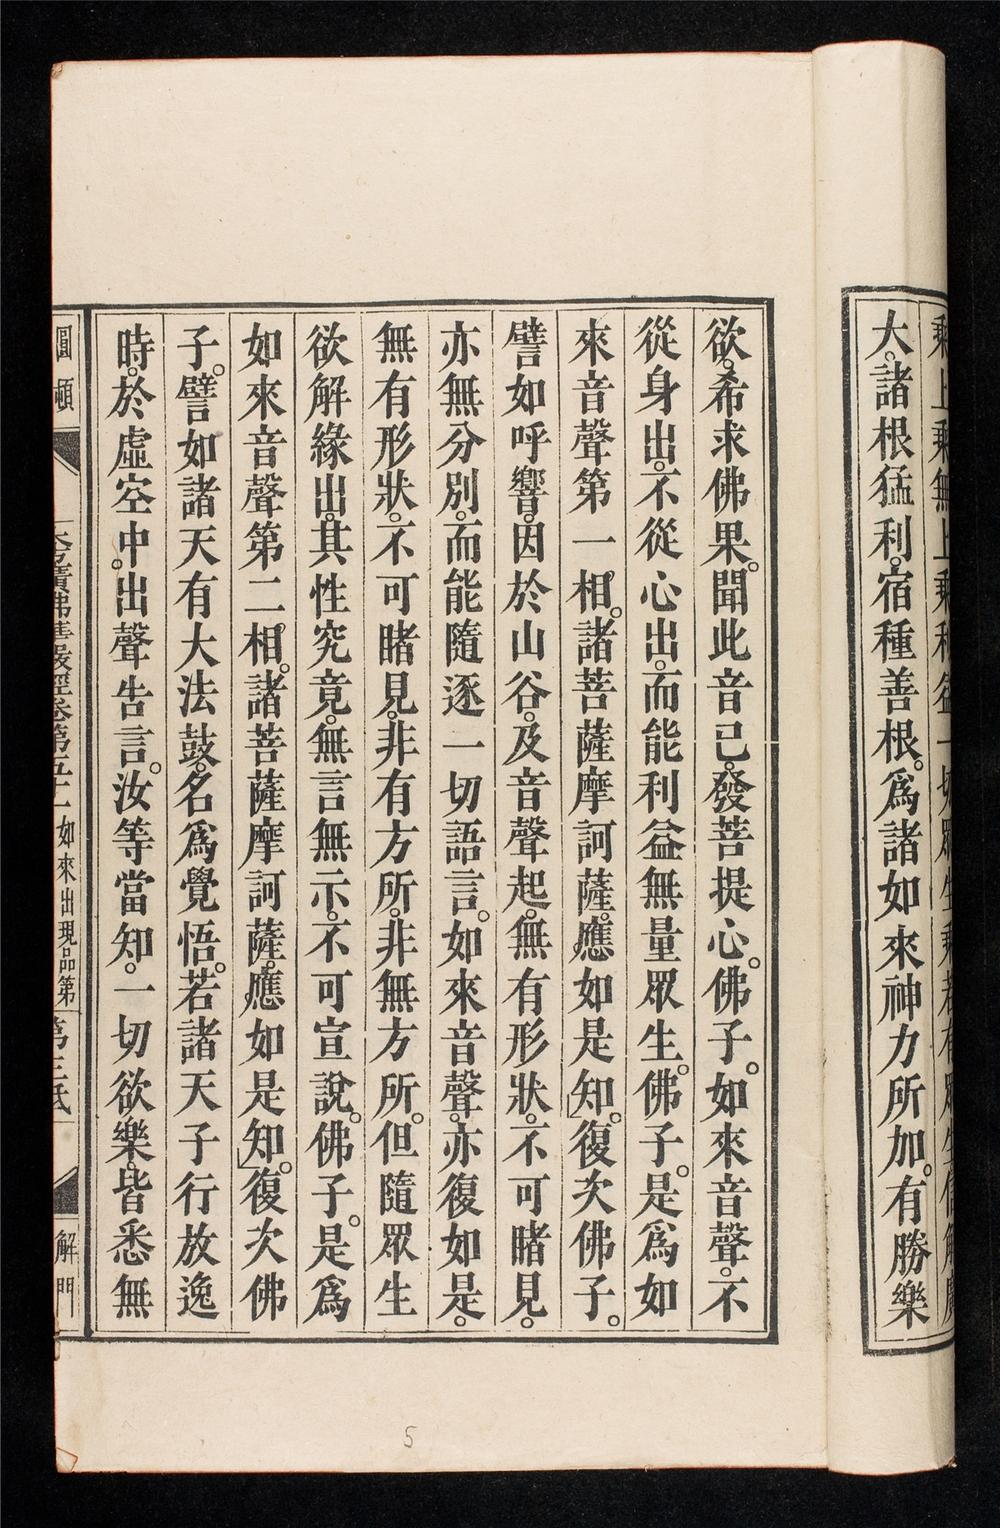 乘上乘無上乘利益一切眾生乘若有眾生信解廣
大。諸根猛利。宿種善根。爲諸如來神力所加。有勝樂
欲。希求佛果。聞此音已。發菩提心。佛子。如來音聲。不
從身出。不從心出。而能利益無量眾生。佛子。是爲如
來音聲第一相。諸菩薩摩訶薩。應如是知。復次佛子。
譬如呼響。因於山谷。及音聲起。無有形狀。不可睹見。
亦無分別。而能隨逐一切語言。如來音聲。亦復如是。
無有形狀。不可睹見。非有方所。非無方所。但隨眾生
欲解緣出。其性究竟。無言無示。不可宣說。佛子。是爲
如來音聲第二相。諸菩薩摩訶薩。應如是知。復次佛
子。譬如諸天有大法鼓。名爲覺悟。若諸天子行放逸
時。於虛空中。出聲告言。汝等當知。一切欲樂。皆悉無
圓頓
大方廣佛華嚴經卷第五十一 如來出現品第 第三紙
解門
5